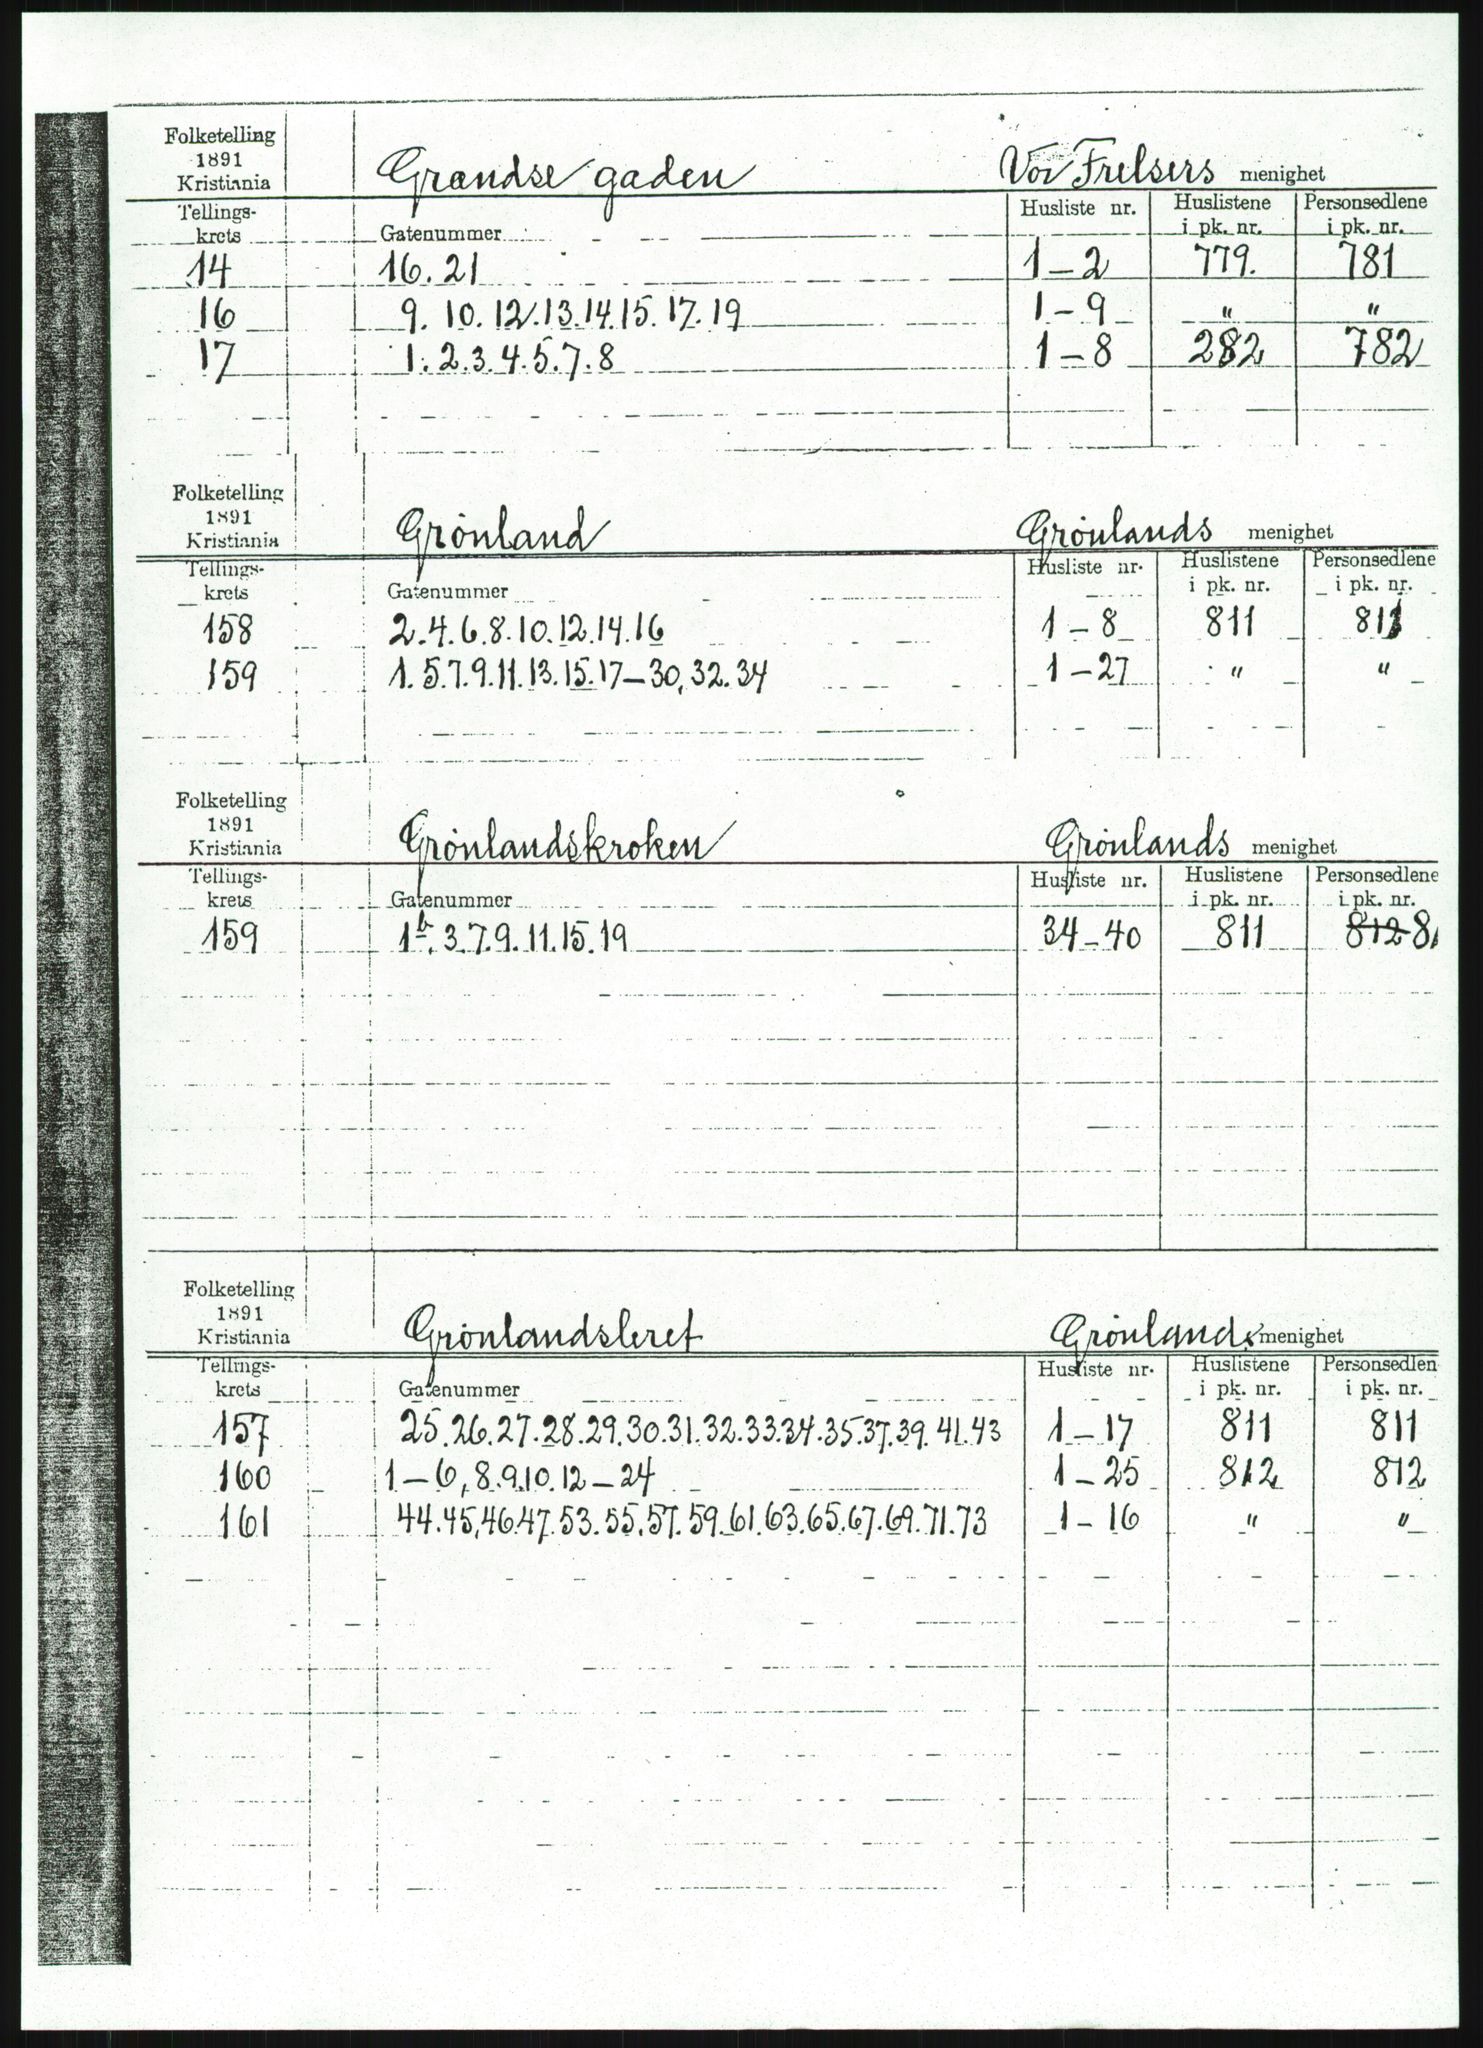 Folketelling
1891
Kristiania
Grændse gaden Vor Frelsers menighet
Tellings-krets Gatenummer Husliste nr. Huslistene i pk. nr. Personsedlene i pk. nr.
14 16. 21 1 – 2 779. 781
16 9. 10. 12. 13. 14. 15. 17. 19 1 – 9 " "
17 1. 2. 3. 4. 5. 7. 8 1 – 8 282 782
Folketelling
1891
Kristiania
Grönland Grönlands menighet
Tellings-krets Gatenummer Husliste nr. Huslistene i pk. nr. Personsedlene i pk. nr.
158 2. 4. 6. 8. 10. 12. 14. 16 1 – 8 811 811
159 1. 5. 7. 9. 11. 13. 15. 17 – 30, 32. 34 1 – 27 " "
Folketelling
1891
Kristiania
Grönlandskroken Grönlands menighet
Tellings-krets Gatenummer Husliste nr. Huslistene i pk. nr. Personsedlene i pk. nr.
159 1b. 3. 7. 9. 11. 15. 19 34 – 40 811 812
Folketelling
1891
Kristiania
Grönlandsleret Grönlands menighet
Tellings-krets Gatenummer Husliste nr. Huslistene i pk. nr. Personsedlen i pk. nr.
157 25. 26. 27. 28. 29. 30. 31. 32. 33. 34. 35. 37. 39. 41. 43 1 – 17 811 811
160 1 – 6, 8. 9. 10. 12 – 24 1 – 25 812 812
161 44. 45. 46. 47. 53. 55. 57. 59. 61. 63. 65. 67. 69. 71. 73 1 – 16 " "